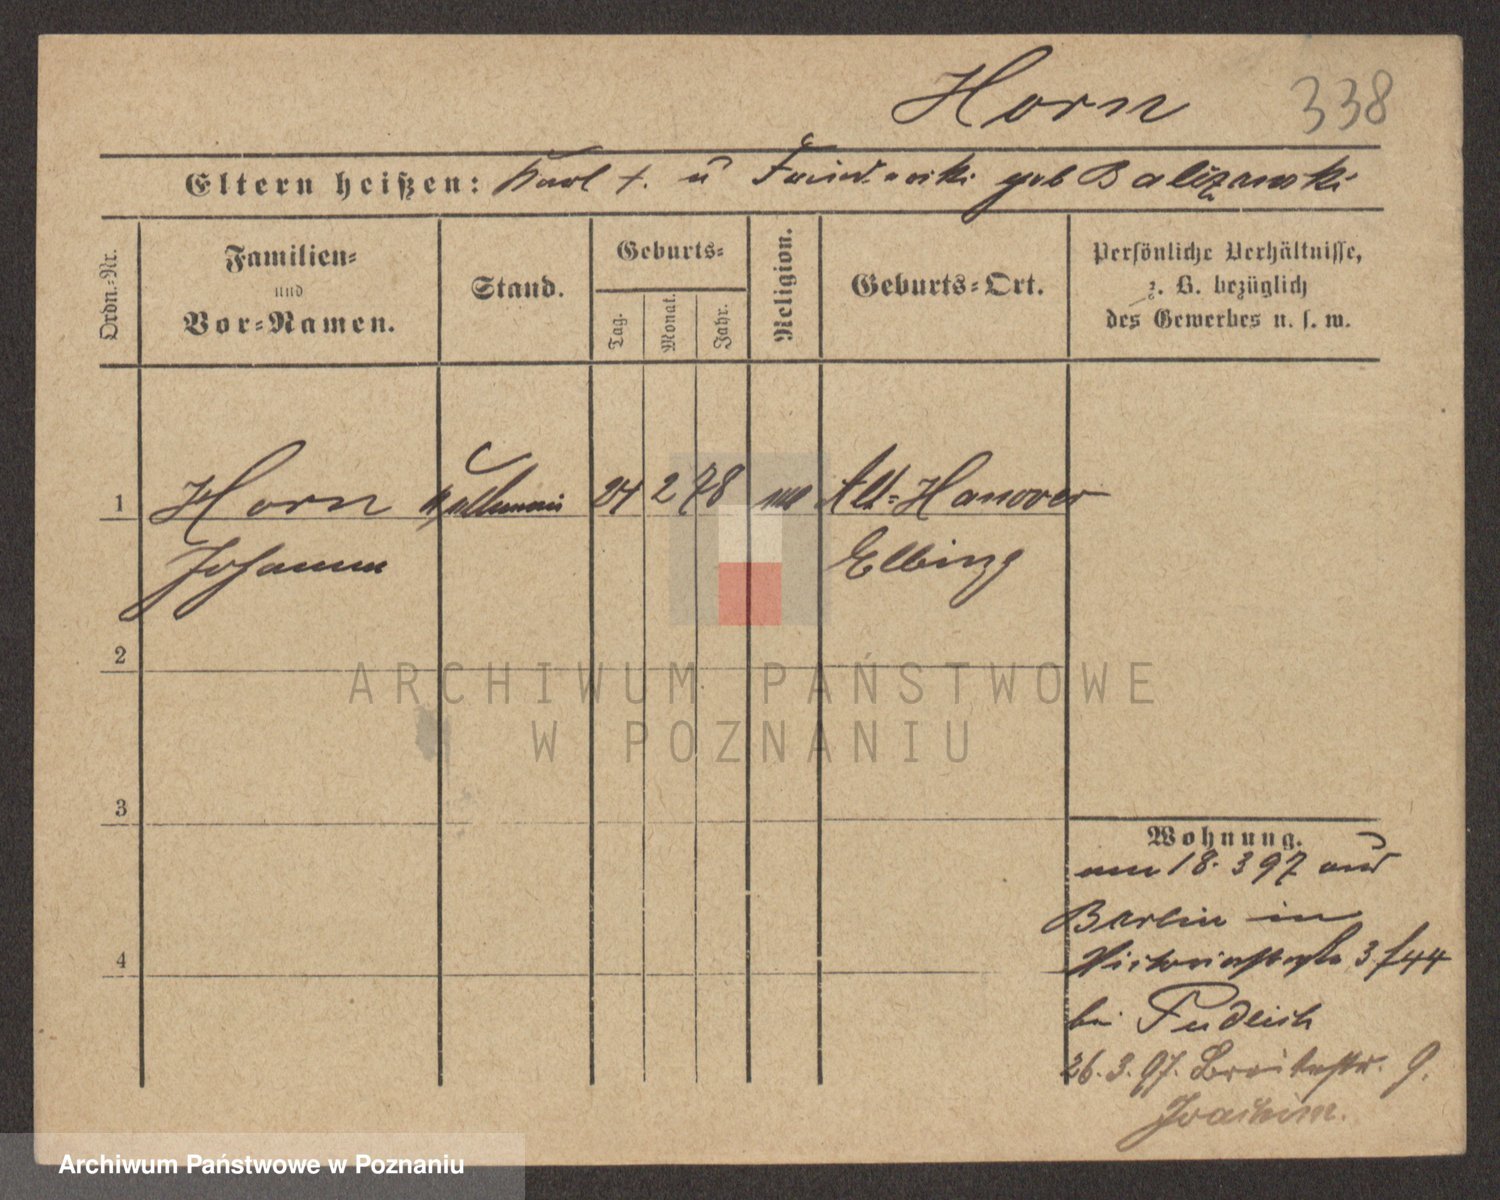 Horn 338
Eltern heißen: Karl †. u geb Balizanski
Ordn.-Nr.
Familien-
und
Vor-Namen.
Stand.
Geburts-
Tag.
Monat.
Jahr.
Religion.
Geburts-Ort.
Persönliche Verhältnisse,
z. B. bezüglich
des Gewerbes u. s. w.
1 Horn 24 2 78 Alt-Hanover
Johann Elbing
2
ARCHIWUM PAŃSTWOWE
W POZNANIU
3
Wohnung.
am 18. 3 97 aus
Berlin in
4
Victoriastraße 3/44
bei Fudeich
26. 3. 97. Breitestr. 9.
Joachim.
Archiwum Państwowe w Poznaniu